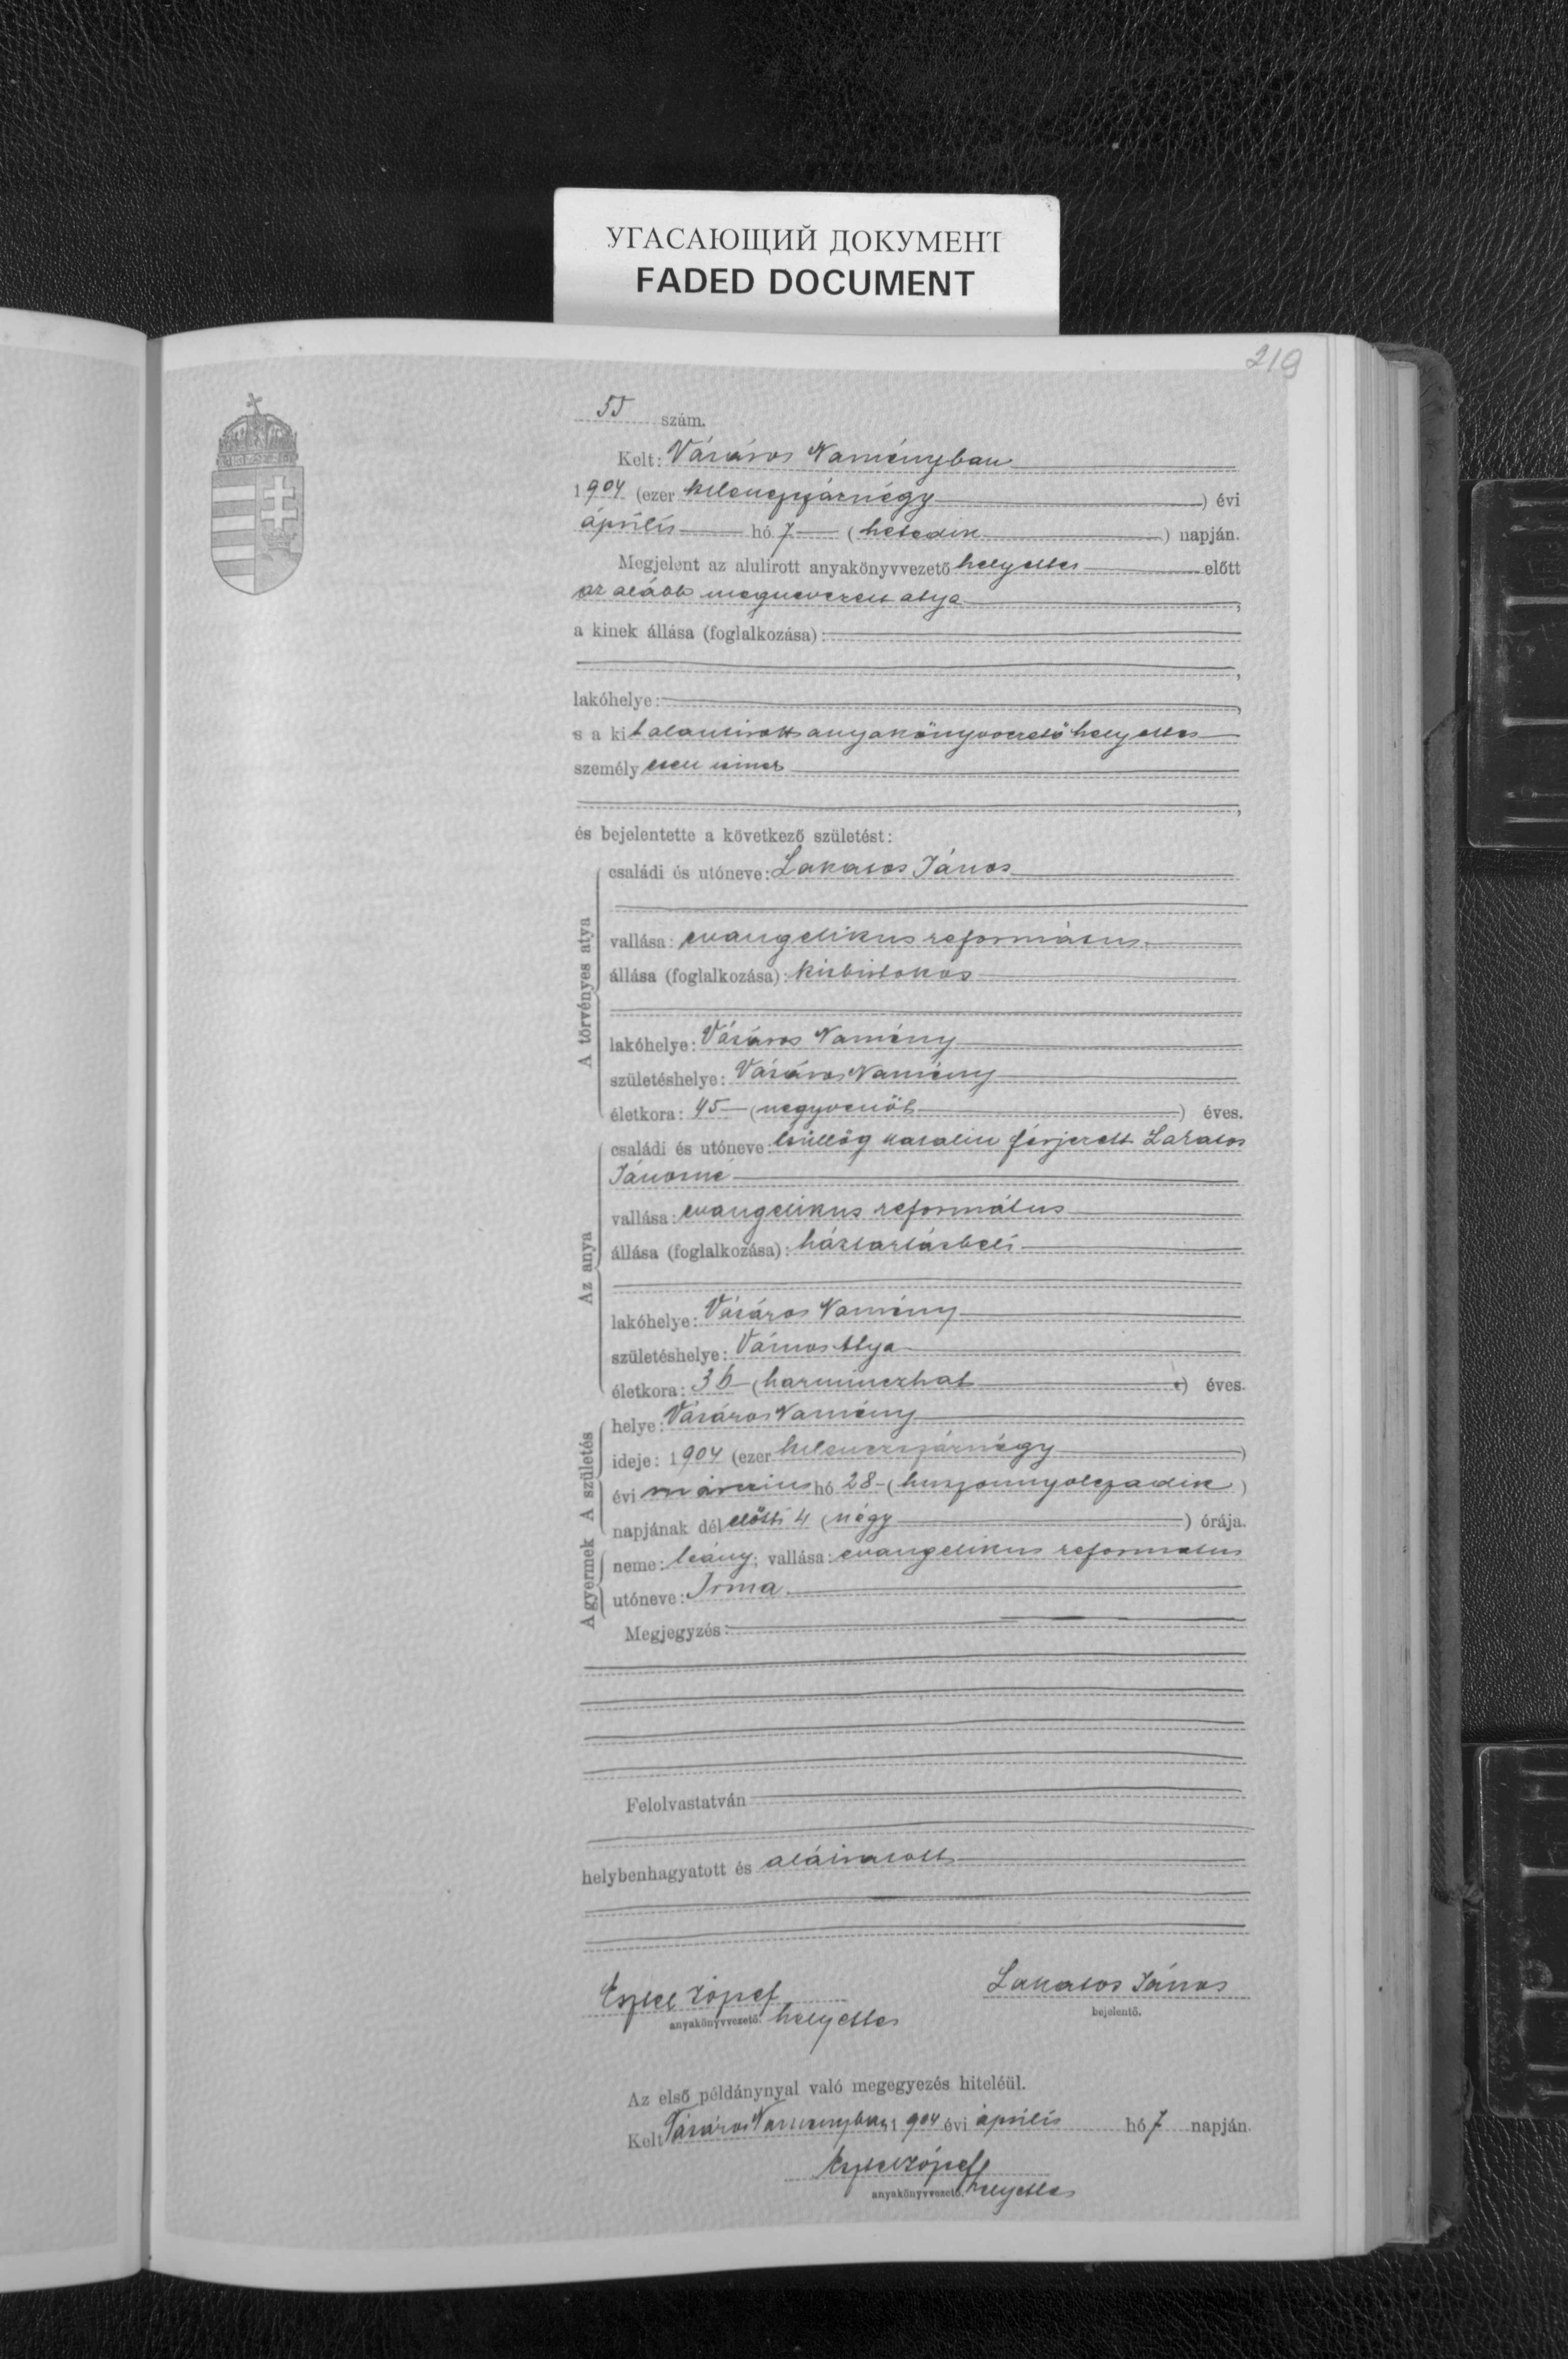 УГАСАЮЩИЙ ДОКУМЕНТ
FADED DOCUMENT
219
55 szám.
Kelt: Vásáros Naményban
1904 (ezer kilenczszáznégy) évi
április hó 7 (hetedik) napján.
Megjelent az alulirott anyakönyvvezető helyettes előtt
az alább megnevezett atya,
a kinek állása (foglalkozása):
lakóhelye:
s a kit alantirott anyakönyvvezető helyettes
személyesen ismer
és bejelentette a következő születést:
A törvényes atya
családi és utóneve: Lakatos János
vallása: evangelikus református
állása (foglalkozása): kisbirtokos
lakóhelye: Vásáros Namény
születéshelye: Vásáros Namény
életkora: 45 (negyvenöt) éves.
Az anya
családi és utóneve: Csüllög Katalin férjezett Lakatos
Jánosné
vallása: evangelikus református
állása (foglalkozása): háztartásbeli
lakóhelye: Vásáros Namény
születéshelye: Vámos Atya
életkora: 36 (harminczhat) éves.
A születés
helye: Vásáros Namény
ideje: 1904 (ezer kilenczszáznégy)
évi márczius hó 28 (huszonnyolczadik)
napjának délelőtti 4 (négy) órája.
A gyermek
neme: leány; vallása: evangelikus református
utóneve: Irma
Megjegyzés:
Felolvastatván
helybenhagyatott és aláiratott
József
anyakönyvvezető. helyettes
Lakatos János
bejelentő.
Az első példánynyal való megegyezés hiteléül.
Kelt Vásáros Naményban, 1904 évi április hó 7 napján.
József
anyakönyvvezető. helyettes